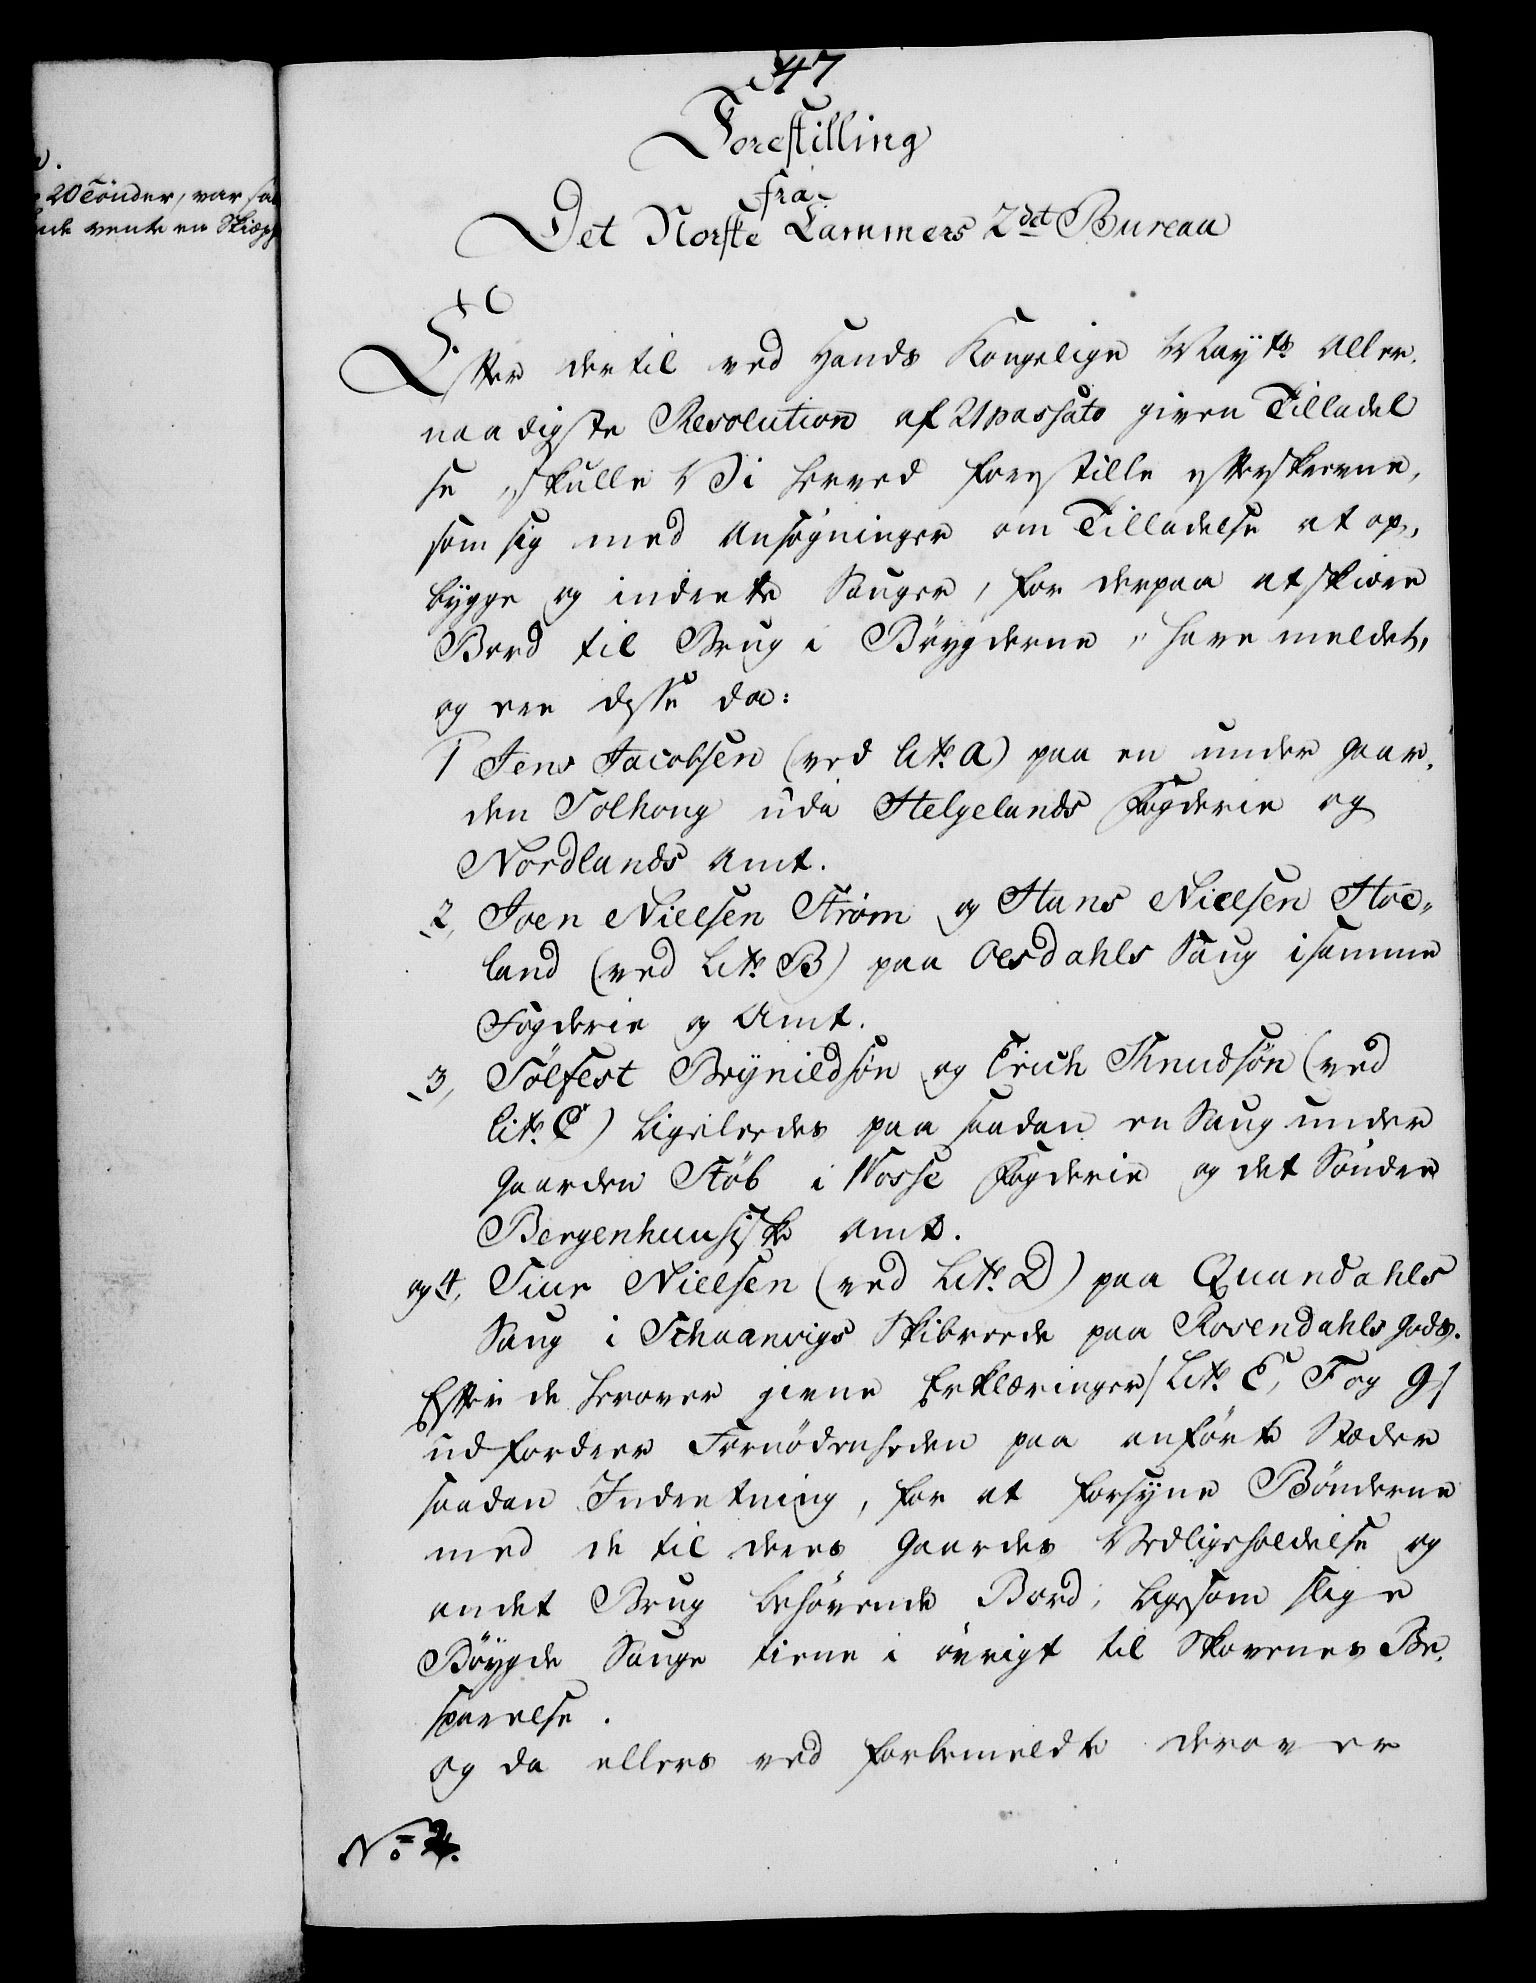 20 Tönder, var saa
vente en Skiæpp
347
Forestilling
fra
Det Norske Cammers 2det Bureau
Efter dertil ved Hands Kongelige Mayts Aller-
naadigste Resolution af 21 passato given Tilladel
se, skulle Vi herved forestille efterskrevne,
som sig med Ansøgninger om Tilladelse at op-
bygge og indrette Sauger, for derpaa at skiære
Bord til Brug i Böygderne, have meldet,
og ere disse da:
1 Jens Jacobsen (ved Litr. A) paa en under Gaar-
den Solhong udi Helgelands Fogderie og
Nordlands Amt.
2, Joen Nielsen Strøm og Hans Nielsen Hoe-
land (ved Litr. B) paa Oesdahls Saug i samme
Fogderie og Amt.
3, Sølfest Brynildsøn og Erich Knudsøn (ved
Litr. C) ligeledes paa saadan en Saug under
Gaarden Støb i Vosse Fogderie og det Søndre
Bergenhuusiske Amt.
og 4, Siur Nielsen (ved Litr. D) paa Quandahls
Saug i Schaanvigs Skibreede paa Rosendahls Gods.
Efter de herover givne Erklæringer/Litr. E, F og G/
udfordrer Fornödenheden paa anförte Stæder
saadan Indretning, for at forsyne Bönderne
med de til deres Gaardes Vedligeholdelse og
andet Brug behövende Bord, ligesom slige
Böygde Sauge tiene i övrigt til Skovenes Be-
sparelse.
Og da ellers ved forbemeldte derover
No 2.